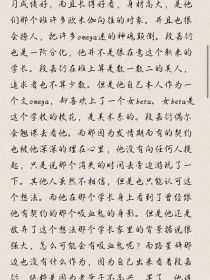 习成绩好，而且长得好看，身材高大，是他
们那个班许多欧米伽向往的对象。并且也很
会撩人，把许多omega迷的神魂颠倒。段嘉
衍也是一阶分化，他并不是很在意这个新来的
学长。段嘉衍在班上算是数一数二的美人，
追求者也不算少数。但是他自己本人作为一
个文omega，却喜欢上了一个女beta。女beta是
这个学校的校花，是美术系的。段嘉衍偶尔
会翘课去看他。而那因为发情期而有的契约
也被他深深的埋在心里，他没有向任何人提
起，只是说那个消失的时间去旁边游玩了一
下。其他人虽然不相信，但是也只能认可这
个想法。而他在那个学长身上看到了曾经跟
他有契约的那个吸血鬼的身影。但是他还是
放弃了这个想法那个学长家里的背景据说很
强大，怎么可能会有吸血鬼呢？而路星辞那
边也没有什么作为，因为自己出来看着段嘉